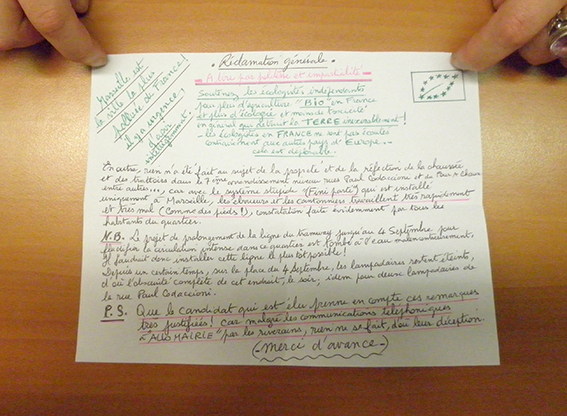 Marseille est
la ville la plus
polluée de France!
il y a urgence!
d'agir
écologiquement!
• Réclamation générale •
- A lire par politesse et impartialité -
Soutenez les écologistes indépendants
pour plus d'agriculture "Bio" en France
et plus d'écologie et moins de toxicité!
en général qui détruit la TERRE inexorablement!
... les écologistes en FRANCE ne sont pas écoutés
contrairement aux autres pays d'Europe...
cela est déplorable.
En outre, rien n'a été fait au sujet de la propreté et de la réfection de la chaussée
et des trottoirs dans le 7ème arrondissement niveau rues Paul Codaccioni et
entre autres...) car avec le système stupide (Fini parti) qui est installé
uniquement à Marseille, les éboueurs et les cantonniers travaillent très rapidement
et très mal (Comme des pieds!), constatation faite évidemment par tous les
habitants du quartier.
N.B. Le projet de prolongement de la ligne du tramway jusqu'au 4 Septembre pour
la circulation intense dans ce quartier est tombé à l'eau malencontreusement,
Il faudrait donc installer cette ligne le plus tôt possible!
Depuis un certain temps, sur la place du 4 Septembre, les lampadaires restent éteints,
d'où l'obscurité complète de cet endroit, le soir, idem pour deux lampadaires de
la rue Paul Codaccioni.
P.S. Que le candidat qui est élu prenne en compte ces remarques
très justifiées! car malgré les communications téléphoniques
à "ALLO MAIRIE" par les riverains, rien ne se fait, d'où leur déception.
(-Merci d'avance-)